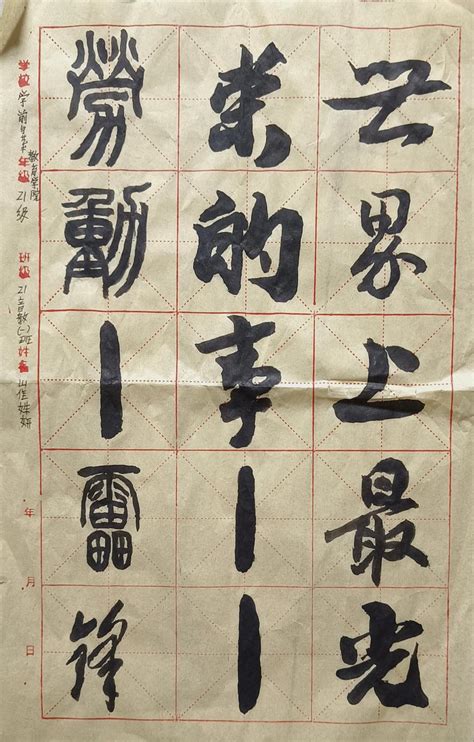 世界上最光
荣的事——
勞動—雷锋
学校 年级 21级 班级 21音教(一)班 姓名
教育学院
年 月 日